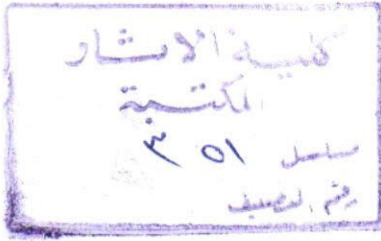 كلية الآثار
المكتبة
مسلسل ٣٥١
رقم التصنيف